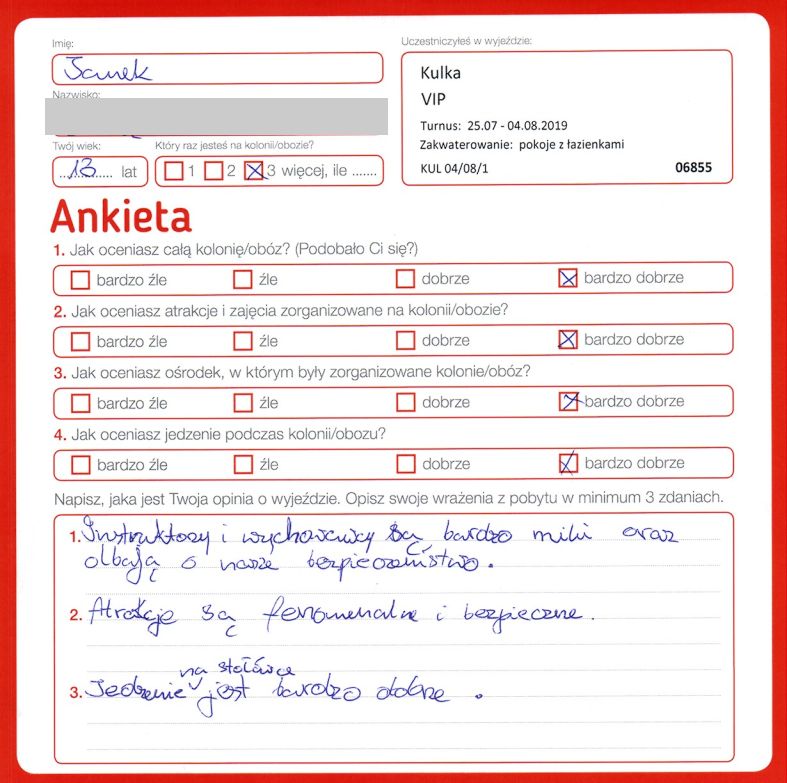 Imię:
Janek
Nazwisko:
Twój wiek:
13 lat
Który raz jesteś na kolonii/obozie?
1 2 3 więcej, ile .......
Uczestniczyłeś w wyjeździe:
Kulka
VIP
Turnus: 25.07 - 04.08.2019
Zakwaterowanie: pokoje z łazienkami
KUL 04/08/1 06855
Ankieta
1. Jak oceniasz całą kolonię/obóz? (Podobało Ci się?)
bardzo źle źle dobrze bardzo dobrze
2. Jak oceniasz atrakcje i zajęcia zorganizowane na kolonii/obozie?
bardzo źle źle dobrze bardzo dobrze
3. Jak oceniasz ośrodek, w którym były zorganizowane kolonie/obóz?
bardzo źle źle dobrze bardzo dobrze
4. Jak oceniasz jedzenie podczas kolonii/obozu?
bardzo źle źle dobrze bardzo dobrze
Napisz, jaka jest Twoja opinia o wyjeździe. Opisz swoje wrażenia z pobytu w minimum 3 zdaniach.
1. Instruktorzy i wychowawcy są bardzo mili oraz
dbają o nasze bezpieczeństwo.
2. Atrakcje są fenomenalne i bezpieczne.
na stołówce
3. Jedzenie jest bardzo dobre.